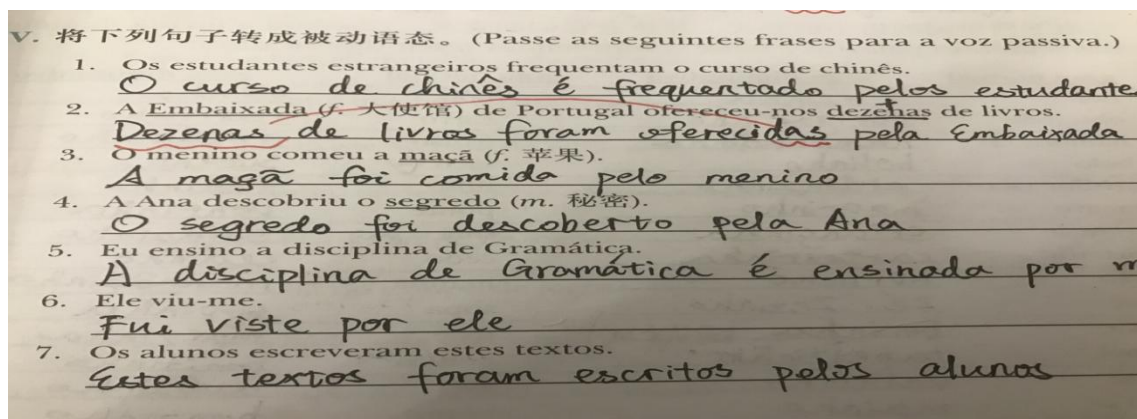 V. 将下列句子转成被动语态。(Passe as seguintes frases para a voz passiva.)
1. Os estudantes estrangeiros frequentam o curso de chinês.
O curso de chinês é frequentado pelos estudante
2. A Embaixada (f. 大使馆) de Portugal ofereceu-nos dezenas de livros.
Dezenas de livros foram oferecidas pela Embaixada
3. O menino comeu a maçã (f. 苹果).
A maçã foi comida pelo menino
4. A Ana descobriu o segredo (m. 秘密).
O segredo foi descoberto pela Ana
5. Eu ensino a disciplina de Gramática.
A disciplina de Gramática é ensinada por m
6. Ele viu-me.
Fui viste por ele
7. Os alunos escreveram estes textos.
Estes textos foram escritos pelos alunos